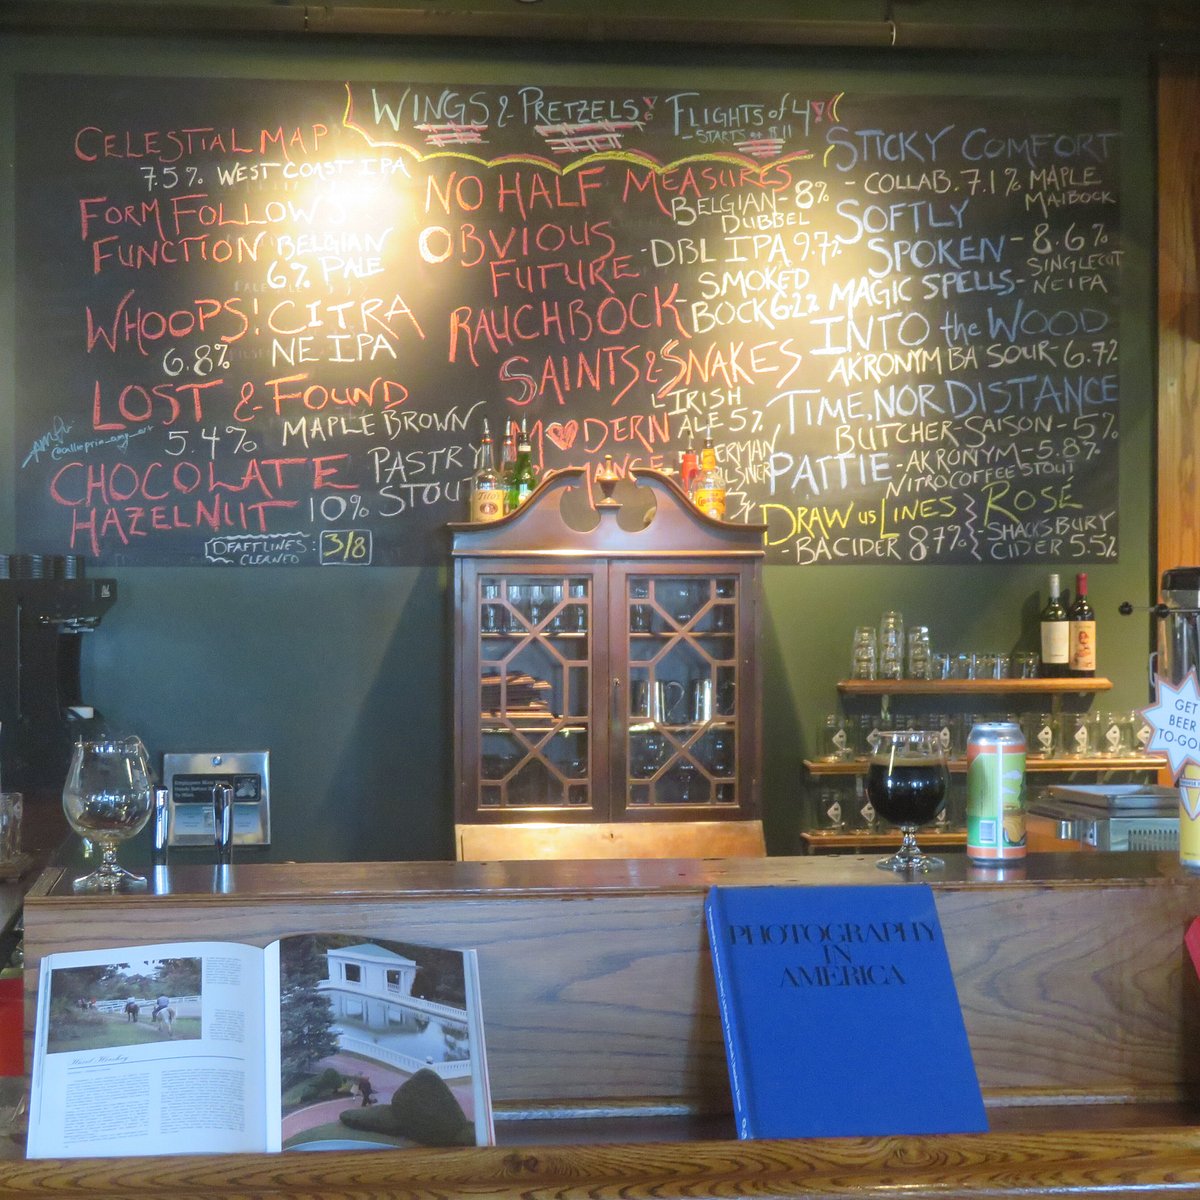 WINGS & PRETZELS! FLIGHTS of 4!
STARTS at $11
CELESTIAL MAP
7.5% WEST COAST IPA
FORM FOLLOWS
FUNCTION BELGIAN
6% PALE
WHOOPS! CITRA
6.8% NE IPA
LOST & FOUND
5.4% MAPLE BROWN
CHOCOLATE PASTRY
HAZELNUT 10% STOUT
DRAFT LINES: 3/8
CLEANED
NO HALF MEASURES
BELGIAN- 8%
DUBBEL
OBVIOUS
FUTURE -DBL IPA 9.7%
RAUCHBOCK- SMOKED
BOCK 6.2%
SAINTS & SNAKES
IRISH
ALE 5%
MODERN
STICKY COMFORT
- COLLAB. 7.1% MAPLE
MAIBOCK
SOFTLY
SPOKEN - 8.6%
MAGIC SPELLS- SINGLECUT
NEIPA
INTO the WOOD
AKRONYM BA SOUR-6.7%
TIME, NOR DISTANCE
BUTCHER-SAISON-5%
PATTIE -AKRONYM-5.8%
NITRO COFFEE STOUT
DRAW us LINES
-BA CIDER 8.7%
ROSÉ
SHACKSBURY
CIDER 5.5%
GET
BEER
TO-GO!
PHOTOGRAPHY
IN
AMERICA